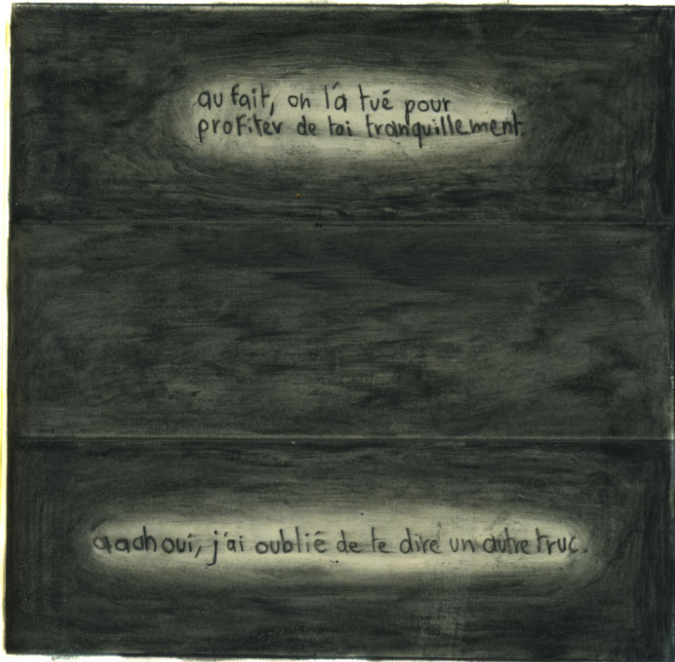 au fait, on l'a tué pour
profiter de toi tranquillement
aaah oui, j'ai oublié de te dire un autre truc.